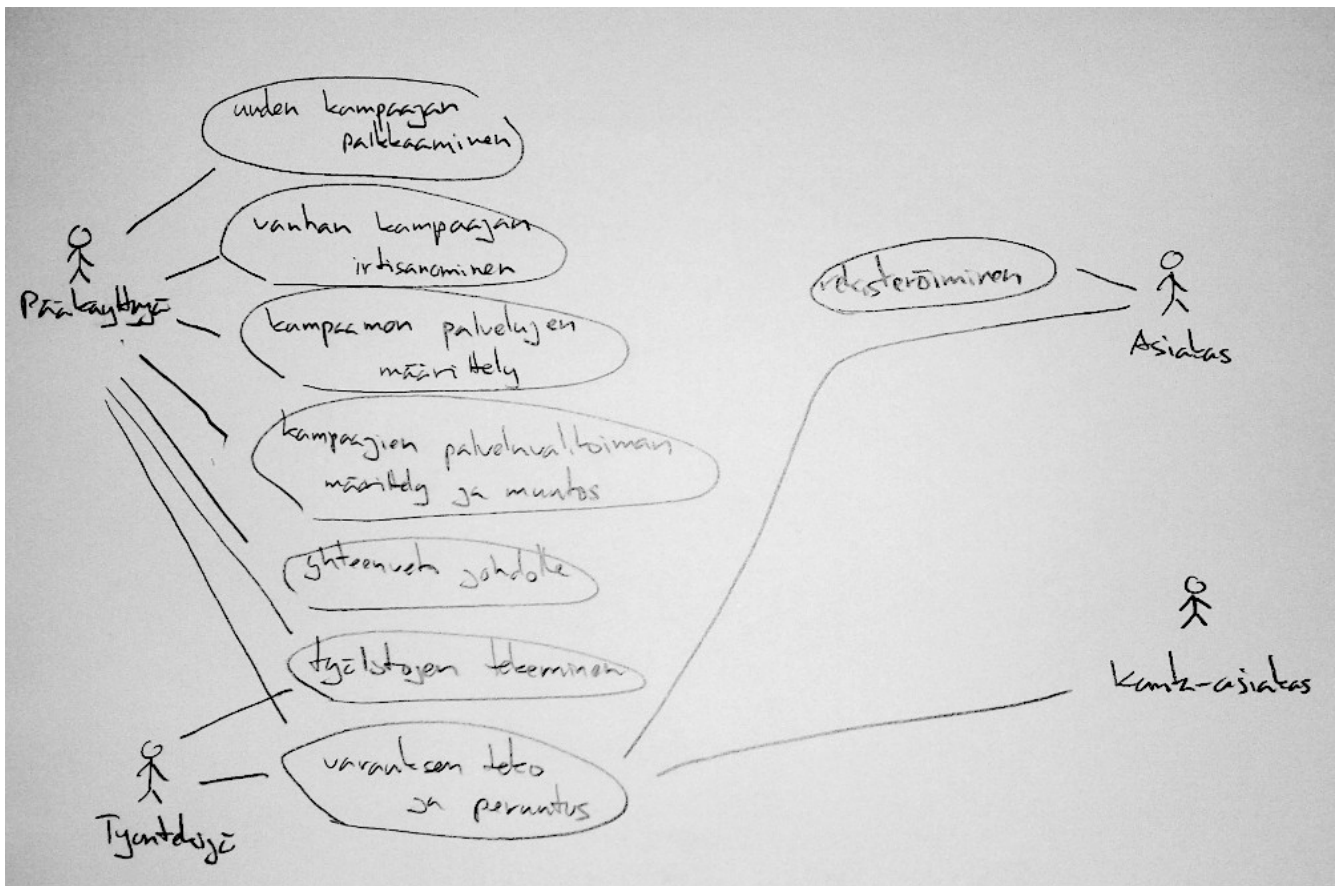 uuden kampaajan
palkkaaminen
vanhan kampaajan
irtisanominen
Pääkäyttäjä
kampaamon palvelujen
määrittely
kampaajien palveluvalikoiman
määrittely ja muutos
yhteenveto johdolle
työlistojen tekeminen
varauksen teko
ja peruutus
Työntekijä
rekisteröiminen
Asiakas
kanta-asiakas